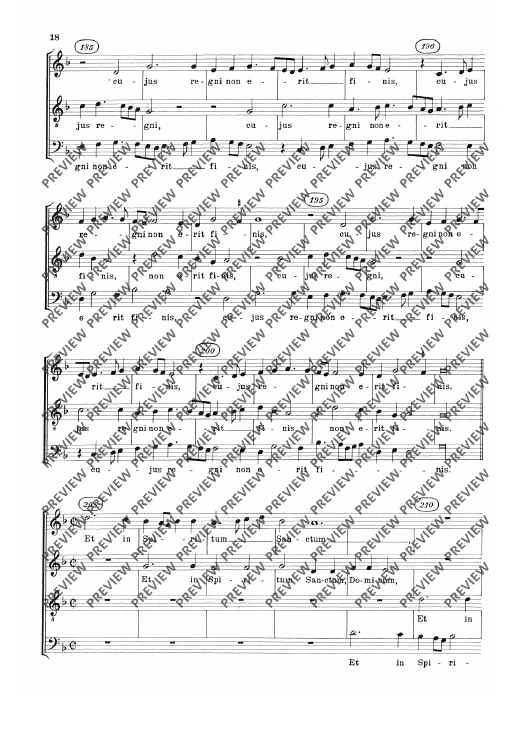 18
185 190
cu - jus re - gni non e - rit fi - nis, cu - jus
jus re - gni, cu - jus re - gni non e - rit
gni non e - rit fi - nis, cu - jus re - gni non
195
re - gni non e - rit fi - nis, cu - jus re - gni non e -
fi - nis, non e - rit fi - nis, cu - jus re - gni, cu -
e - rit fi - nis, cu - jus re - gni non e - rit fi - nis,
200
rit fi - nis, cu - jus re - gni non e - rit fi - nis.
jus re - gni non e - rit fi - nis, non e - rit fi - nis.
cu - jus re - gni non e - rit fi - nis.
205 210
Et in Spi - ri - tum San - ctum
Et in Spi - ri - tum San - ctum, Do - mi - num,
Et in
Et in Spi - ri -
PREVIEW PREVIEW PREVIEW PREVIEW PREVIEW PREVIEW